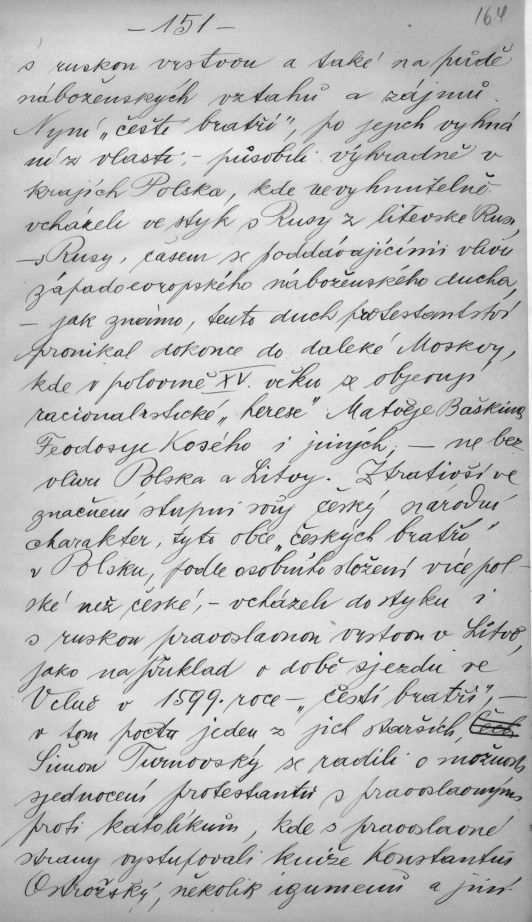 164
- 151 -
s ruskou vrstvou a také na půdě
náboženských vztahů a zájmů.
Nyní „čeští bratří“, po jejch vyhná
ní z vlasti, - působili výhradně v
krajích Polska, kde nevyhnutelně
vcházeli ve styk s Rusy z litevské Rusi,
- s Rusy, časem se poddávajícími vlivu
západoevropského náboženského ducha,
- jak známo, tento duch protestantství
pronikal dokonce do daleké Moskvy,
kde v polovině XV. věku se objevují
racionalistické „herese“ Matvěje Baškina,
Feodosije Kosého i jiných, - ne bez
vlivu Polska a Litvy. Ztrativší ve
značném stupni svůj český národní
charakter, tyto obce „českých bratří“
v Polsku, podle osobního složení více pol-
ské než české, - vcházeli do styku i
s ruskou pravoslavnou vrstvou v Litvě,
jako na příklad o době sjezdu ve
Velně v 1599. roce - „čeští bratří“, -
v tom počtu jeden z jich starších,
Šimon Turnovský se radili o možnosti
sjednocení protestantů s pravoslavnými
proti katolíkům, kde s pravoslavné
strany vystupovali kníže Konstantin
Ostrožský, několik igumenů a jiní